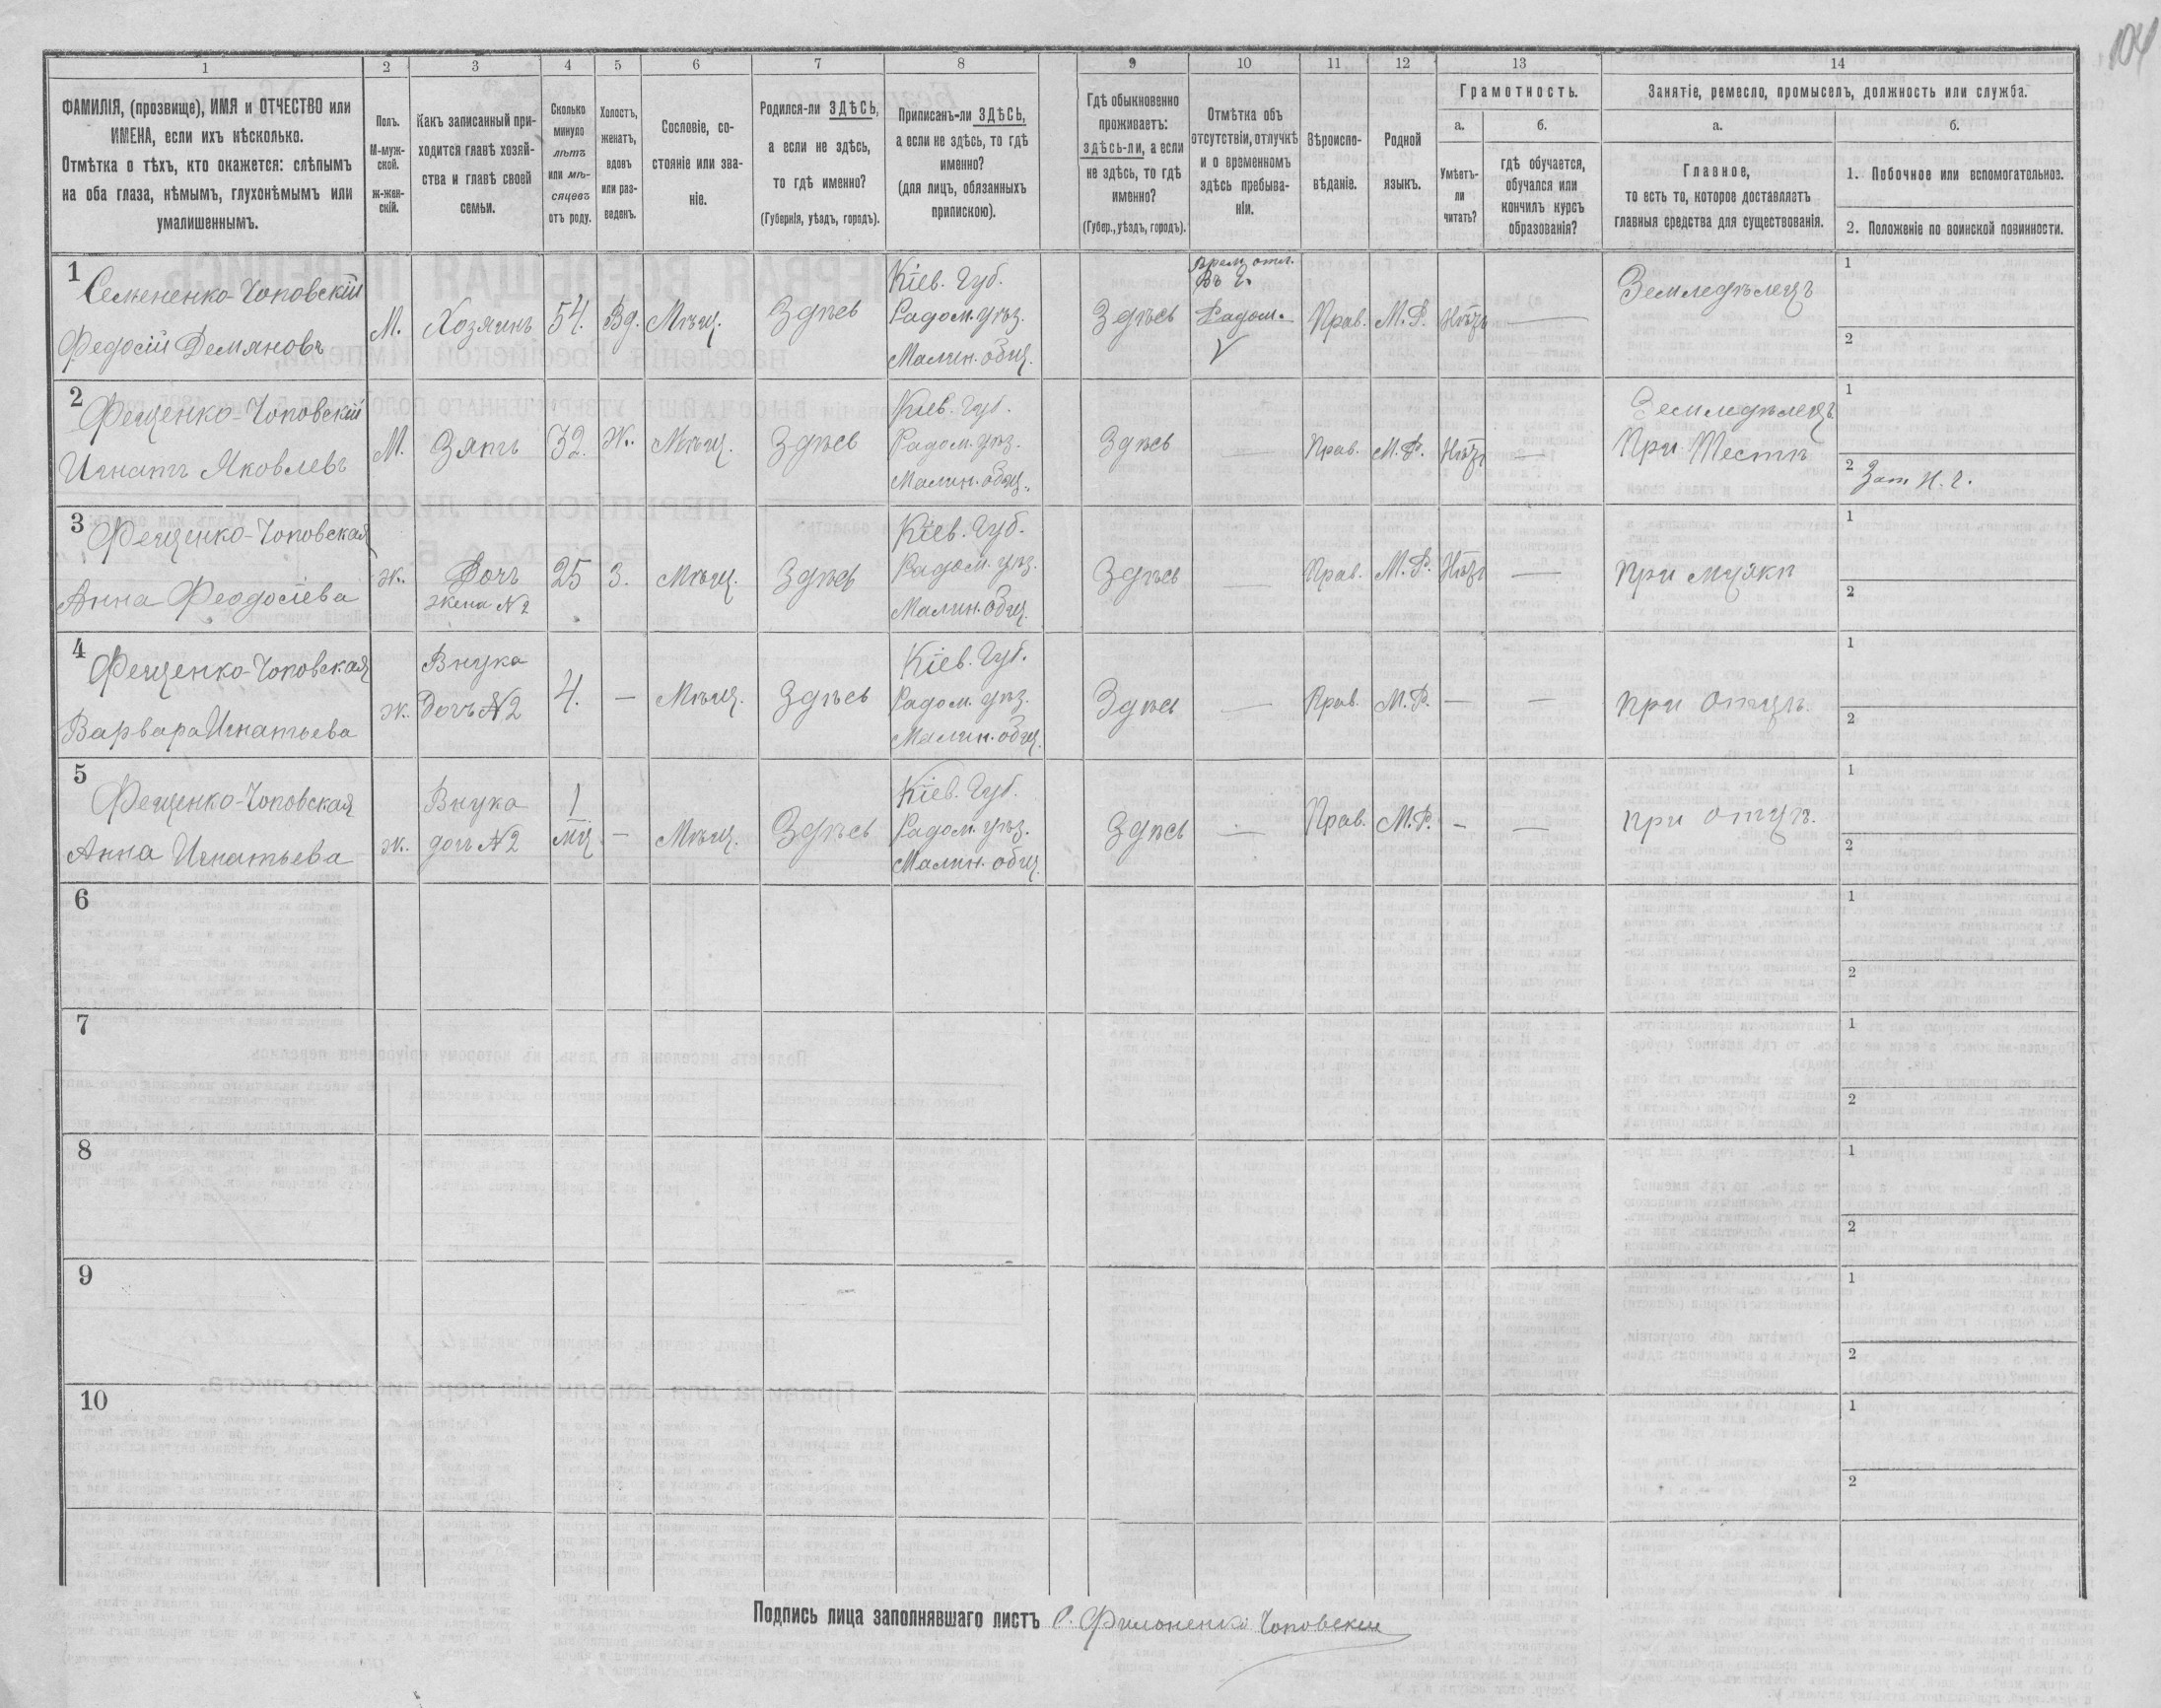 104
1 2 3 4 5 6 7 8 9 10 11 12 13 14
ФАМИЛІЯ, (прозвище), ИМЯ и ОТЧЕСТВО или
ИМЕНА, если ихъ нѣсколько.
Отмѣтка о тѣхъ, кто окажется: слѣпымъ
на оба глаза, нѣмымъ, глухонѣмымъ или
умалишеннымъ.
Полъ.
М-муж-
ской.
ж-жен-
скій.
Какъ записанный при-
ходится главѣ хозяй-
ства и главѣ своей
семьи.
Сколько
минуло
лѣтъ
или мѣ-
сяцевъ
отъ роду.
Холостъ,
женатъ,
вдовъ
или раз-
веденъ.
Сословіе, со-
стояніе или зва-
ніе.
Родился-ли ЗДѢСЬ,
а если не здѣсь,
то гдѣ именно?
(Губернія, уѣздъ, городъ).
Приписанъ-ли ЗДѢСЬ,
а если не здѣсь, то гдѣ
именно?
(для лицъ, обязанныхъ
припискою).
Гдѣ обыкновенно
проживаетъ:
здѣсь-ли, а если
не здѣсь, то гдѣ
именно?
(Губер., уѣздъ, городъ).
Отмѣтка объ
отсутствіи, отлучкѣ
и о временномъ
здѣсь пребыва-
ніи.
Вѣроиспо-
вѣданіе.
Родной
языкъ.
Грамотность.
а.
Умѣетъ-
ли
читать?
б.
гдѣ обучается,
обучался или
кончилъ курсъ
образованія?
Занятіе, ремесло, промыселъ, должность или служба.
а.
Главное,
то есть то, которое доставляетъ
главныя средства для существованія.
б.
1. Побочное или вспомогательное.
2. Положеніе по воинской повинности.
1
Семененко-Чоповскій
Федосій Демяновъ
М.
Хозяинъ
54.
Вд.
Мѣщ.
Здѣсь
Кіев. Губ.
Радом. уѣз.
Малин. общ.
Здѣсь
врем. отл.
Въ г.
Радом.
V
Прав.
М. Р.
Нѣтъ
—
Земледѣлецъ
1
2
2
Фещенко-Чоповскій
Игнатъ Яковлевъ
М.
Зять
32.
Ж.
Мѣщ.
Здѣсь
Кіев. Губ.
Радом. уѣз.
Малин. общ.
Здѣсь
—
Прав.
М. Р.
Нѣтъ
—
Земледѣлецъ
При Тестѣ
1
2
3
Фещенко-Чоповская
Анна Феодосіева
ж.
Дочь
жена №2
25
З.
Мѣщ.
Здѣсь
Кіев. Губ.
Радом. уѣз.
Малин. общ.
Здѣсь
—
Прав.
М. Р.
Нѣтъ
—
при мужѣ
1
2
4
Фещенко-Чоповская
Варвара Игнатьева
ж.
Внука
Дочь №2
4.
—
Мѣщ.
Здѣсь
Кіев. Губ.
Радом. уѣз.
Малин. общ.
Здѣсь
—
Прав.
М. Р.
—
—
при отцѣ.
1
2
5
Фещенко-Чоповская
Анна Игнатьева
ж.
Внука
дочь №2
1
мц
—
Мѣщ.
Здѣсь
Кіев. Губ.
Радом. уѣз.
Малин. общ.
Здѣсь
—
Прав.
М. Р.
—
—
при отцѣ.
1
2
6
1
2
7
1
2
8
1
2
9
1
2
10
1
2
Подпись лица заполнявшаго листъ Филоненко Чоповскій